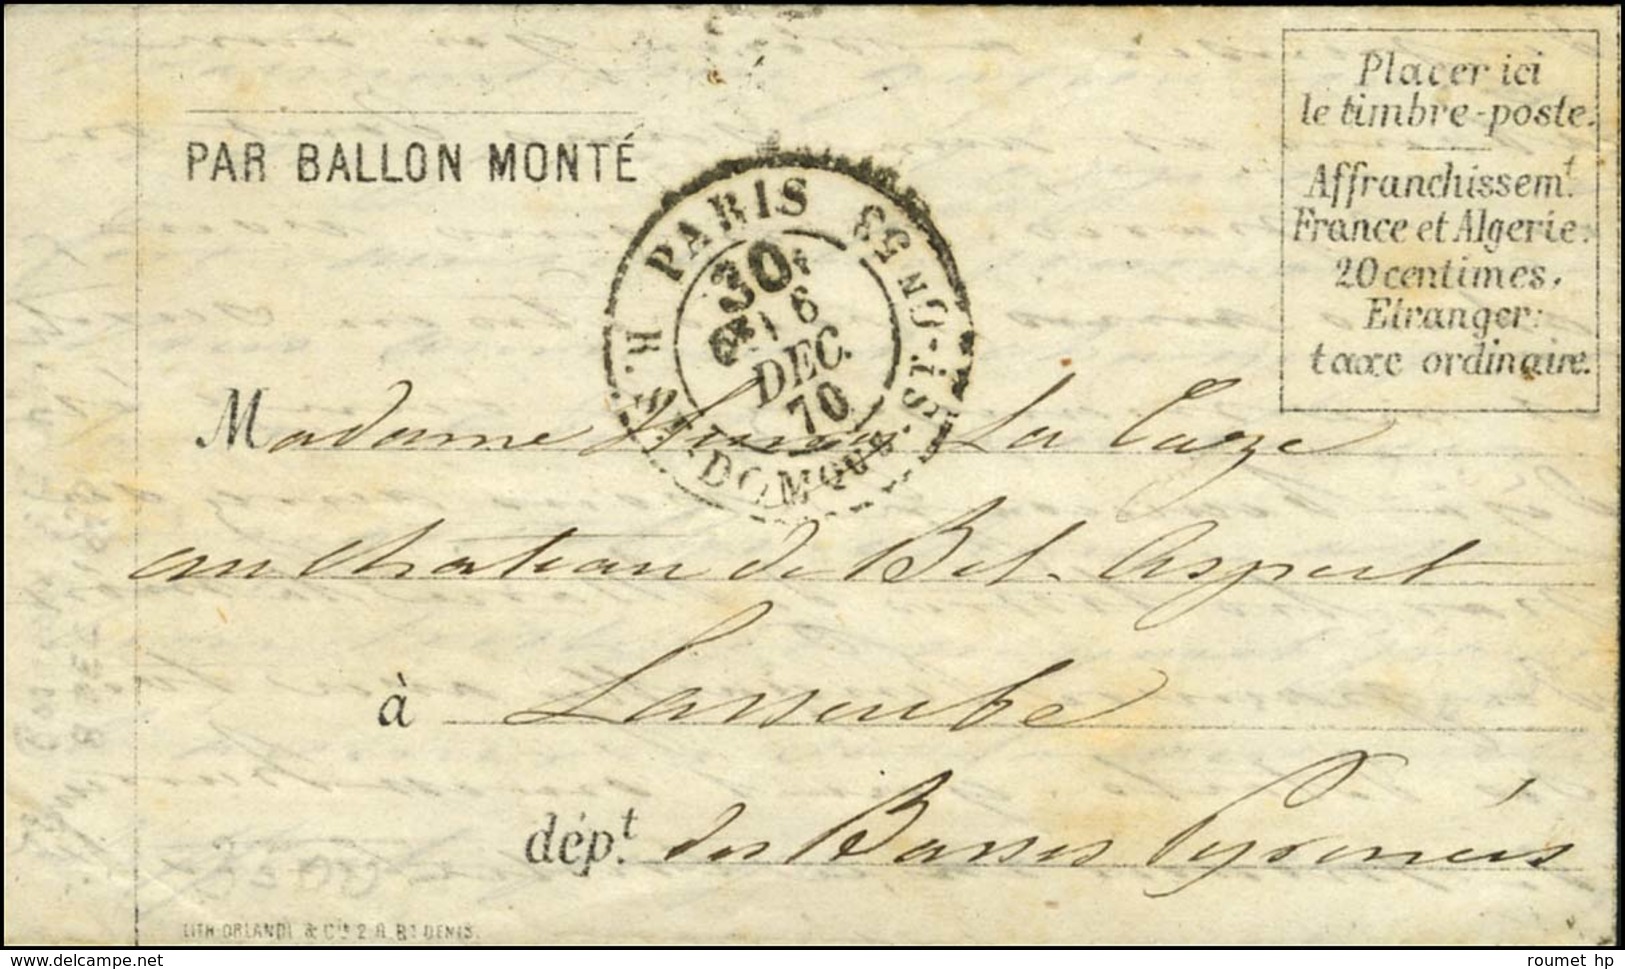 PAR BALLON MONTÉ
Placer ici
le timbre-poste.
Affranchissem.t
France et Algerie:
20 centimes.
Etranger:
taxe ordinaire.
PARIS
R. ST-DOMQUE-ST-G N 53
30
6
DEC.
70
Madame La Caze
au Chateau de Bel-Aspect
à Lasseube
dép.t des Basses Pyrénées
LITH. ORLANDI & Cie 2 R. Bt DENIS.
roumet hp